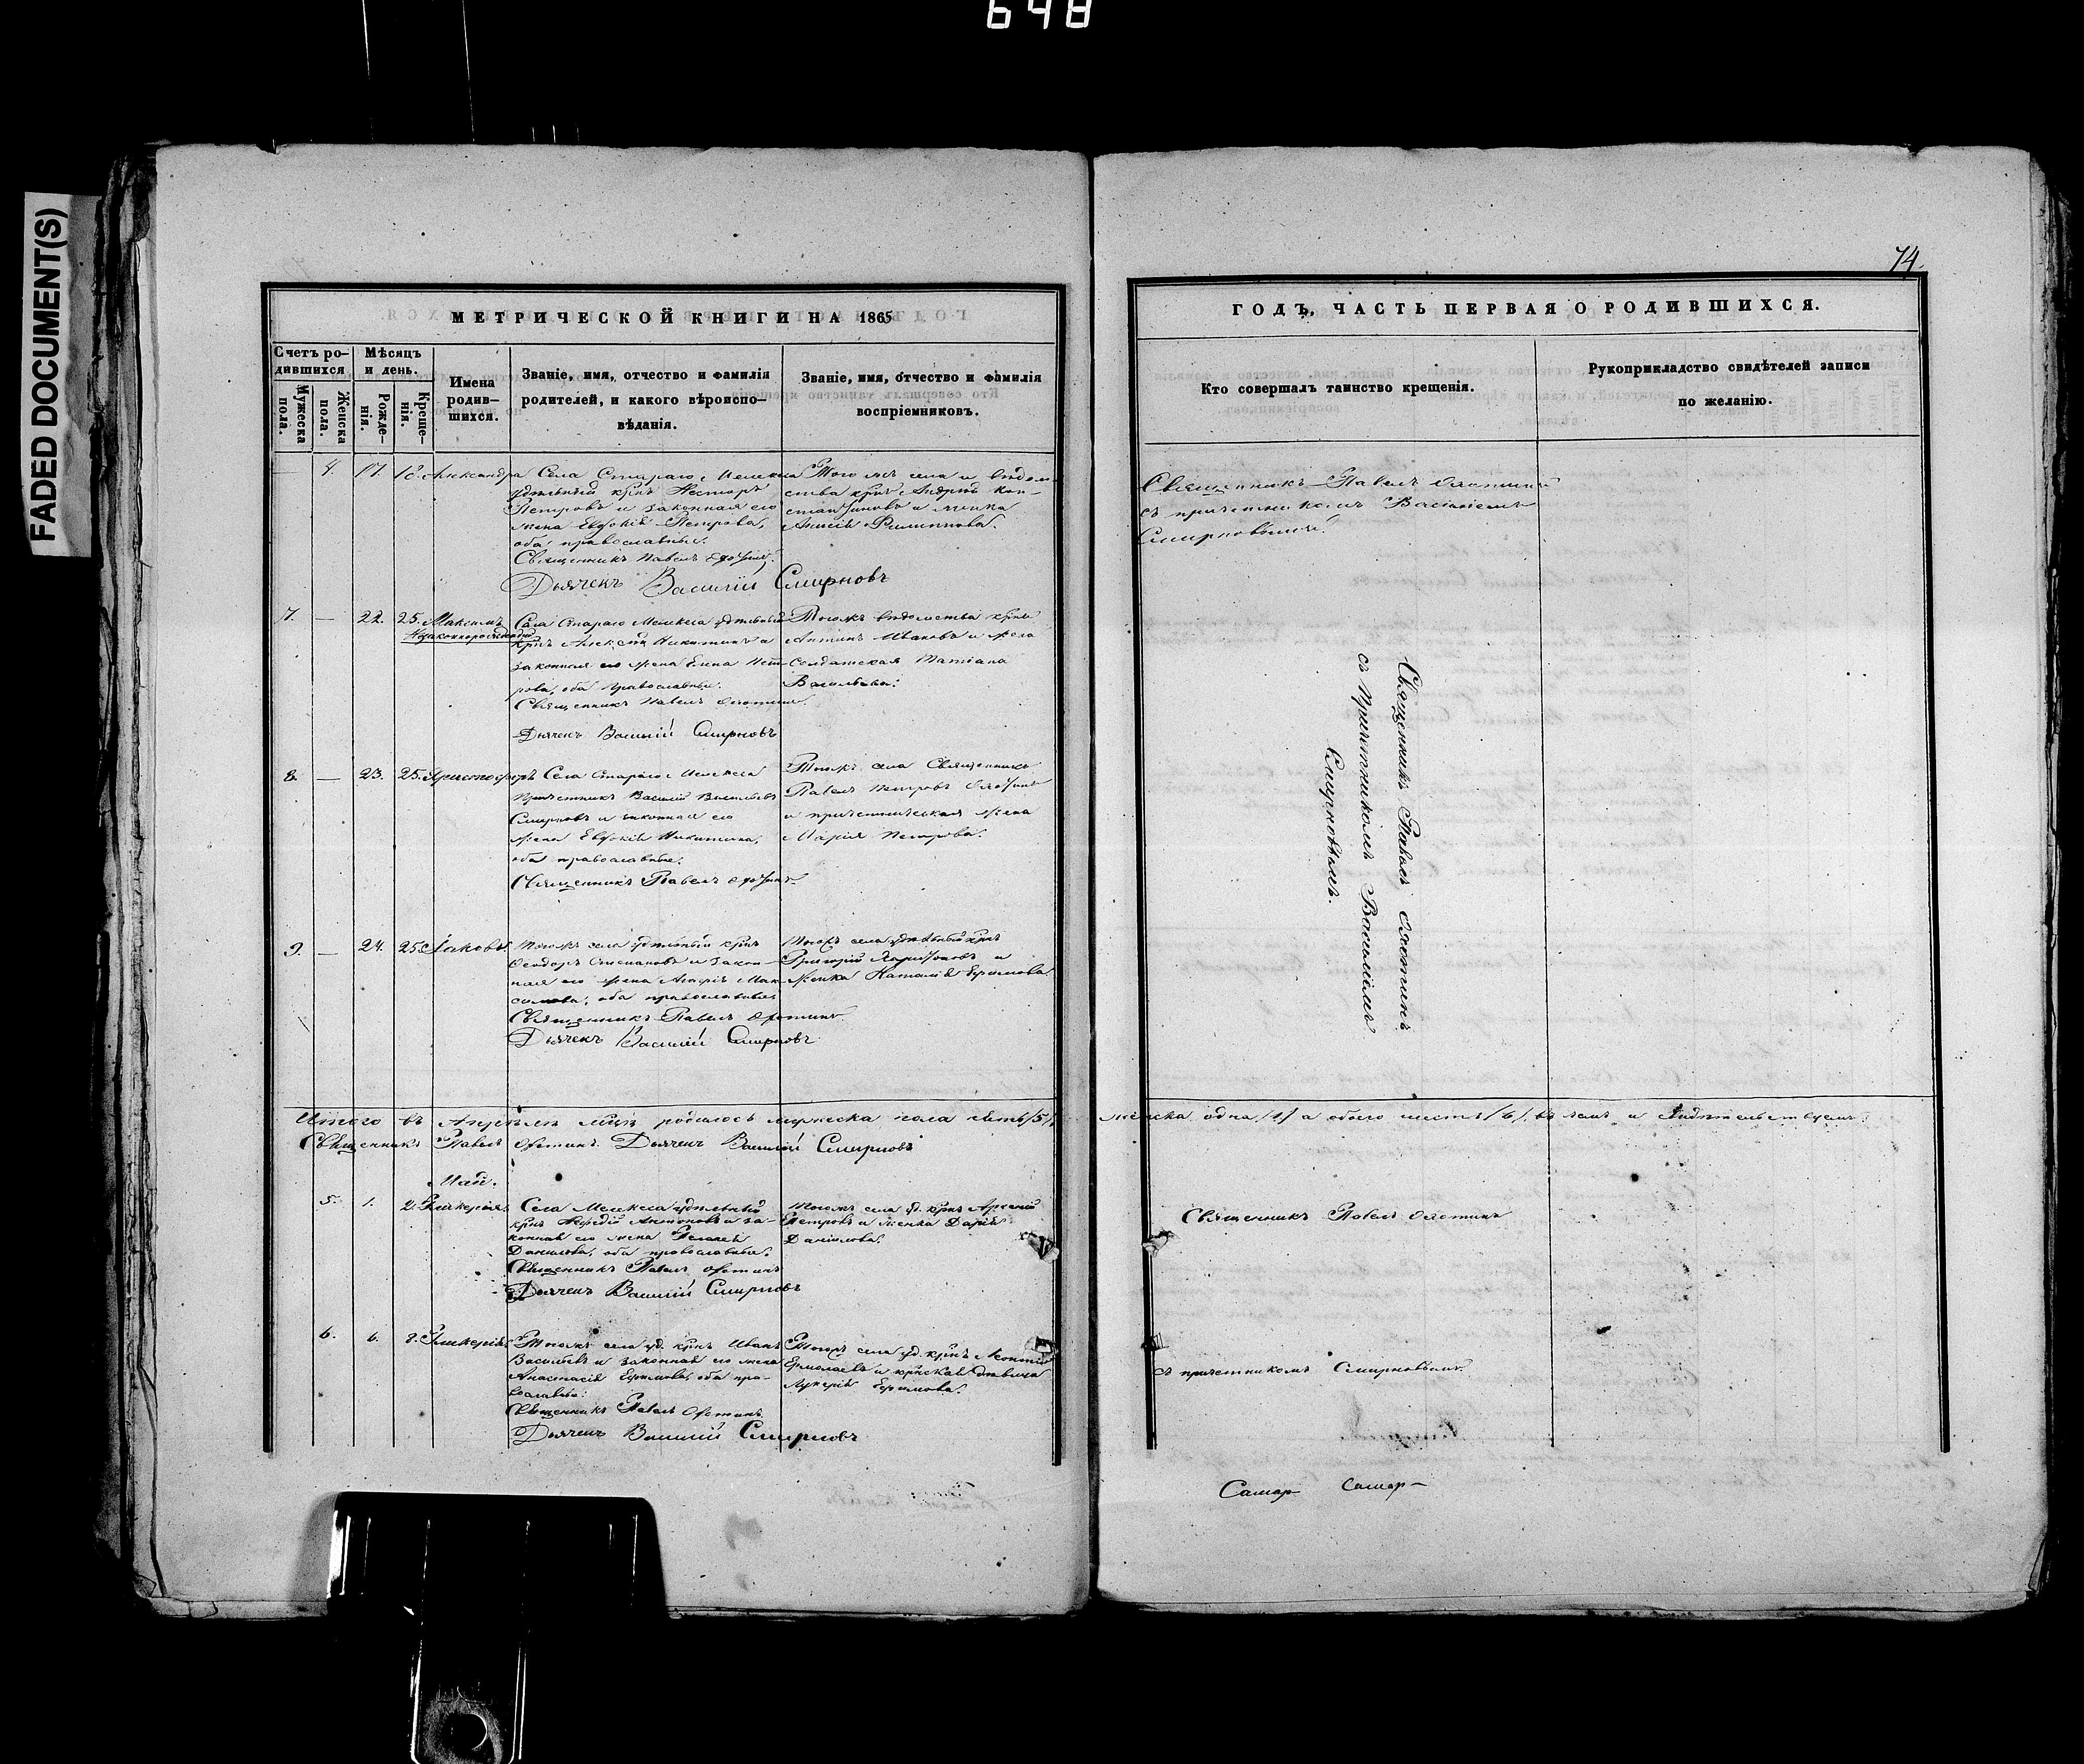 648
FADED DOCUMENT(S)
МЕТРИЧЕСКОЙ КНИГИ НА 1865
Счетъ ро-
дившихся
Мужеска
пола.
Женска
пола.
Мѣсяцъ
и день.
Рожде-
нія.
Креще-
нія.
Имена
родив-
шихся.
Званіе, имя, отчество и фамилія
родителей, и какого вѣроиспо-
вѣданія.
Званіе, имя, отчество и фамилія
воспріемниковъ.
4. 17. 18. Александра
Села Стараго
удѣльный крнъ Несторъ
Петровъ и законная его
жена Евдокія Петрова,
оба православные.
Священникъ Павелъ
Дьячекъ Василій Смирновъ
Того же села и вѣдом-
ства крнъ Андрей Кон-
стантиновъ и
Анисія Филиппова.
7. — 22. 25. Максимъ
Незаконнорожденный
Села Стараго удѣльный
крнъ Алексѣй Никитинъ и
законная его жена Елена Пет-
рова, оба православные.
Священникъ Павелъ
Дьячекъ Василій Смирновъ
Тогожъ вѣдомства крнъ
Антипъ Ивановъ и жена
Солдатская Татіана
Васильева.
8. — 23. 25. Христофоръ
Села Стараго
Причетникъ Василій Васильевъ
Смирновъ и законная его
жена Евдокія Никитина,
оба православные.
Священникъ Павелъ
Тогожъ села Священникъ
Павелъ Петровъ
и причетническая жена
Марія Петрова.
9. — 24. 25. Іаковъ
Тогожъ села удѣльный крнъ
Ѳеодоръ Степановъ и закон-
ная его жена Мак-
симова, оба православные
Священникъ Павелъ
Дьячекъ Василій Смирновъ
Тогожъ села удѣльный крнъ
Григорій и
женка Наталія Ефимова.
Итого въ Апрѣлѣ мцѣ родилось мужеска пола пять /5/,
Священникъ Павелъ Дьячекъ Василій Смирновъ
Май.
5. 1. 2. Гликерія
Села удѣльный
крнъ Антоновъ и за-
конная его жена Пелагея
Данилова, оба православные.
Священникъ Павелъ
Дьячекъ Василій Смирновъ
Тогожъ села уд. крнъ Арсеній
Петровъ и женка Дарія
Даніилова.
6. 6. 8. Гликерія
Тогожъ села уд. крнъ Иванъ
Васильевъ и законная его жена
Анастасія Ефимова, оба пра-
вославные.
Священникъ Павелъ
Дьячекъ Василій Смирновъ
Тогожъ села уд. крнъ Леонтій
Ермолаевъ и крнская дѣвица
Ефимова.
74.
ГОДЪ, ЧАСТЬ ПЕРВАЯ О РОДИВШИХСЯ.
Кто совершалъ таинство крещенія.
Рукоприкладство свидѣтелей записи
по желанію.
Священникъ Павелъ
съ причетникомъ Василіемъ
Смирновымъ.
Священникъ Павелъ
съ Причетникомъ Василіемъ
Смирновымъ.
женска одна /1/ а обоего шесть /6/, въ чемъ и свидѣтельствуемъ.
Священникъ Павелъ
съ причетникомъ Смирновымъ.
Самар Самар